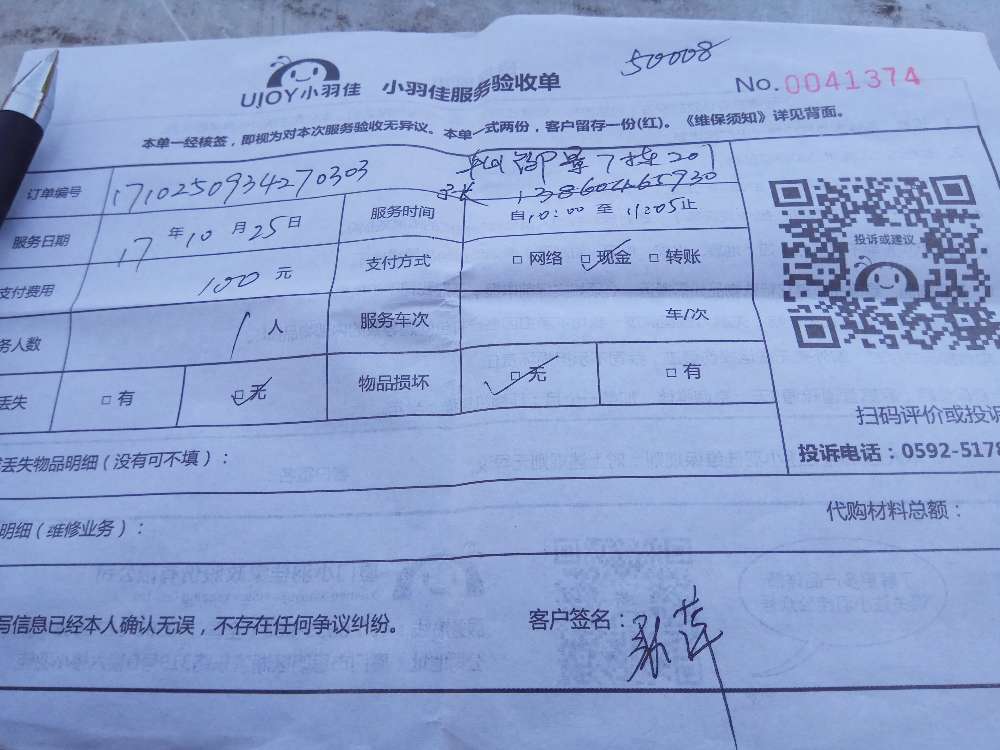 50008
UJOY小羽佳 小羽佳服务验收单 No.0041374
本单一经核签，即视为对本次服务验收无异议。本单一式两份，客户留存一份(红)。《维保须知》详见背面。
7栋201
订单编号 1710250934270303
13860465930
服务日期 17年10月25日 服务时间 自10:00至11:05止
投诉或建议
支付费用 100元 支付方式 □网络 □现金 □转账
务人数 1人 服务车次 车/次
丢失 □有 □无 物品损坏 □无 □有
扫码评价或投诉
丢失物品明细（没有可不填）：
投诉电话：0592-5178
明细（维修业务）：
代购材料总额：
写信息已经本人确认无误，不存在任何争议纠纷。 客户签名：